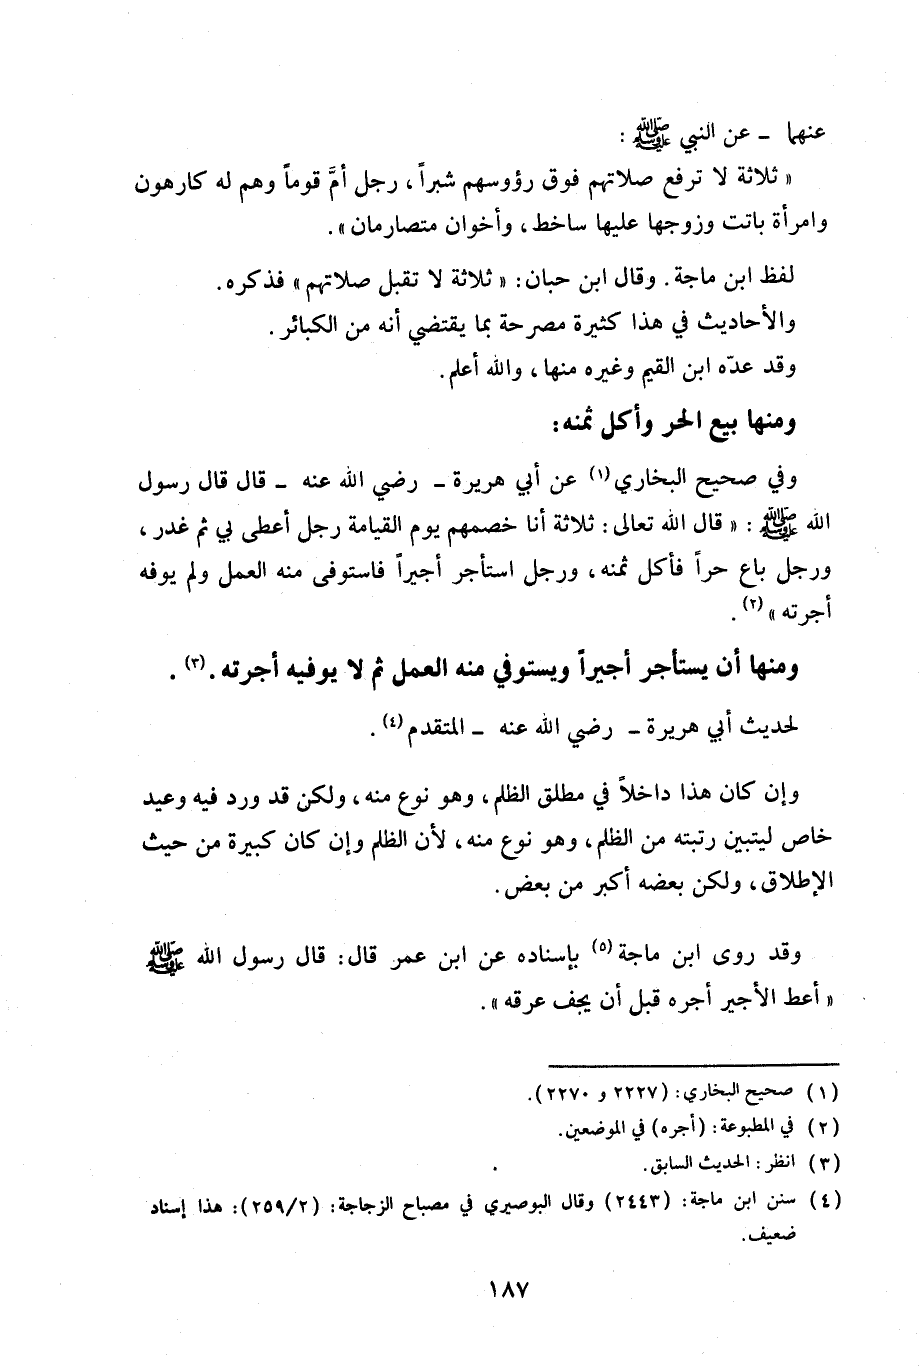 عنهما - عن النبي ﷺ :
« ثلاثة لا ترفع صلاتهم فوق رؤوسهم شبراً ، رجل أمَّ قوماً وهم له كارهون
وامرأة باتت وزوجها عليها ساخط ، وأخوان متصارمان » .
لفظ ابن ماجة . وقال ابن حبان : « ثلاثة لا تقبل صلاتهم » فذكره .
والأحاديث في هذا كثيرة مصرحة بما يقتضي أنه من الكبائر .
وقد عدّه ابن القيم وغيره منها ، والله أعلم .
ومنها بيع الحر وأكل ثمنه :
وفي صحيح البخاري (١) عن أبي هريرة - رضي الله عنه - قال قال رسول
الله ﷺ : « قال الله تعالى : ثلاثة أنا خصمهم يوم القيامة رجل أعطى بي ثم غدر ،
ورجل باع حراً فأكل ثمنه ، ورجل استأجر أجيراً فاستوفى منه العمل ولم يوفه
أجرته » (٢) .
ومنها أن يستأجر أجيراً ويستوفي منه العمل ثم لا يوفيه أجرته . (٣) .
لحديث أبي هريرة - رضي الله عنه - المتقدم (٤) .
وإن كان هذا داخلاً في مطلق الظلم ، وهو نوع منه ، ولكن قد ورد فيه وعيد
خاص ليتبين رتبته من الظلم ، وهو نوع منه ، لأن الظلم وإن كان كبيرة من حيث
الإطلاق ، ولكن بعضه أكبر من بعض .
وقد روى ابن ماجة (٥) بإسناده عن ابن عمر قال : قال رسول الله ﷺ
« أعط الأجير أجره قبل أن يجف عرقه » .
(١) صحيح البخاري : (٢٢٢٧ و ٢٢٧٠) .
(٢) في المطبوعة : (أجره) في الموضعين .
(٣) انظر : الحديث السابق .
(٤) سنن ابن ماجة : (٢٤٤٣) وقال البوصيري في مصباح الزجاجة : (٢/٢٥٩) : هذا إسناد
ضعيف .
١٨٧